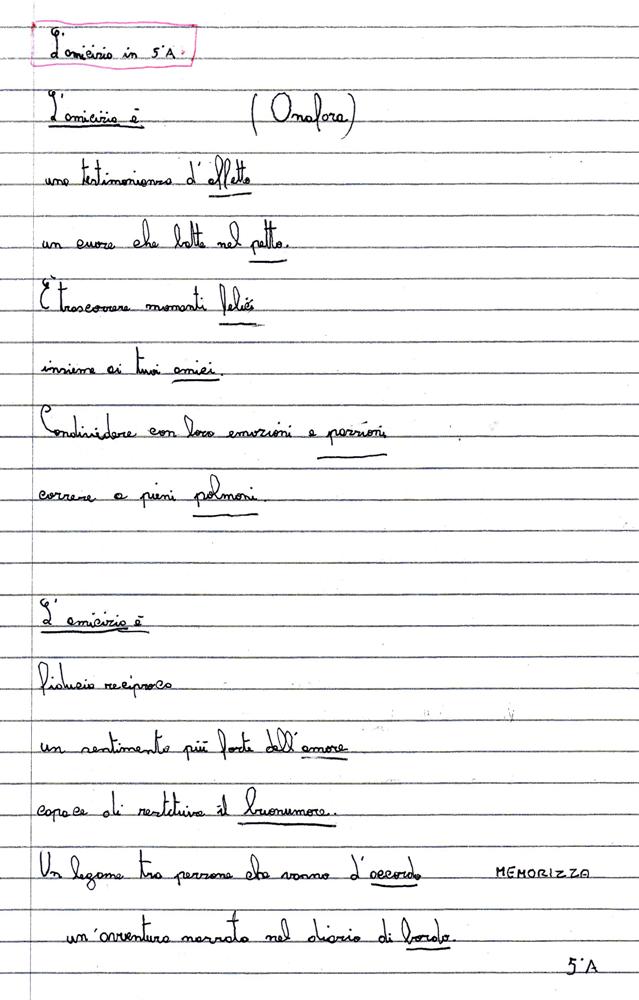 L'amicizia in 5°A.
L'amicizia è (Anafora)
una testimonianza d'affetto
un cuore che batte nel petto.
È trascorrere momenti felici
insieme ai tuoi amici.
Condividere con loro emozioni e passioni
correre a pieni polmoni.
L'amicizia è
fiducia reciproca
un sentimento più forte dell'amore
capace di restituire il buonumore.
Un legame tra persone che vanno d'accordo MEMORIZZA
un'avventura narrata nel diario di bordo.
5°A